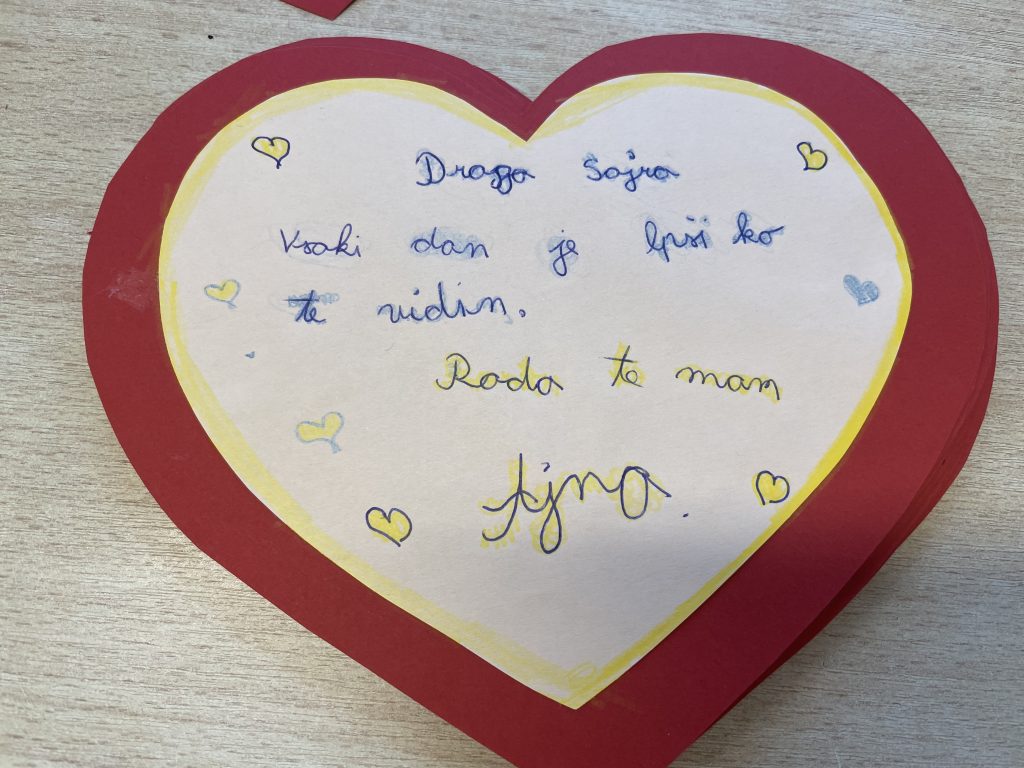 Draga Sajra
Vsaki dan je lpši ko
te vidin.
Rada te mam
Ajna.